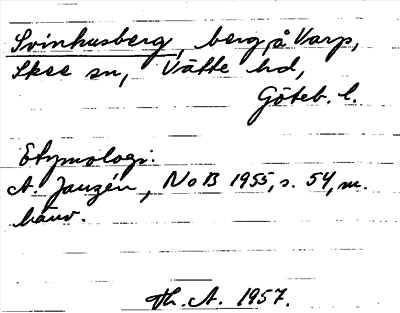 Svinhusberg, berg på Varp,
Skee sn, Vätte hd,
Göteb. l.
Etymologi:
A. Janzén, NoB 1955, s. 54, m.
hänv.
Th. A. 1957.